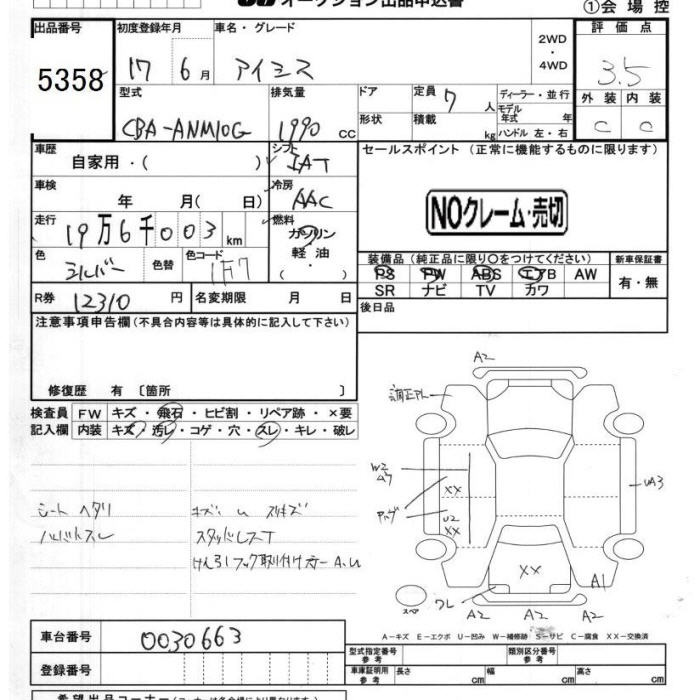 オークション出品申込書
①会場控
出品番号 初度登録年月 車名・グレード 2WD ・ 4WD 評価点
5358 17 6月 アイシス 3.5
型式 排気量 ドア 定員 7 人 ディーラー・並行 外装 内装
CBA-ANM10G 1990 cc 形状 積載 kg モデル年式 年 ハンドル 左・右 C C
車歴 自家用・( ) シフト IAT セールスポイント (正常に機能するものに限ります)
車検 年 月( 日) 冷房 AAC
NOクレーム・売切
走行 19万6千003km 燃料 ガソリン 軽油 ・( )
色 シルバー 色替 色コード 1F7
装備品 (純正品に限り○をつけてください) 新車保証書
PS PW ABS エアB AW 有・無
SR ナビ TV カワ
R券 12310 円 名変期限 月 日 後日品
注意事項申告欄(不具合内容等は具体的に記入して下さい)
修復歴 有 〔箇所 〕
検査員 FW キズ・飛石・ヒビ割・リペア跡・×要
記入欄 内装 キズ・汚レ・コゲ・穴・スレ・キレ・破レ
シート ヘタリ
キズ・U スリキズ
スタッドレスT
けん引フック取付け A.U
A2
W2
XX
U2
XX
UA3
XX
ワレ
A1
スペア
A2 A2 A2
A-キズ E-エクボ U-凹み W-補修跡 S-サビ C-腐食 XX-交換済
車台番号 0030663
型式指定番号 参考 類別区分番号 参考
登録番号
車庫証明用 参考 長さ cm 幅 cm 高さ cm